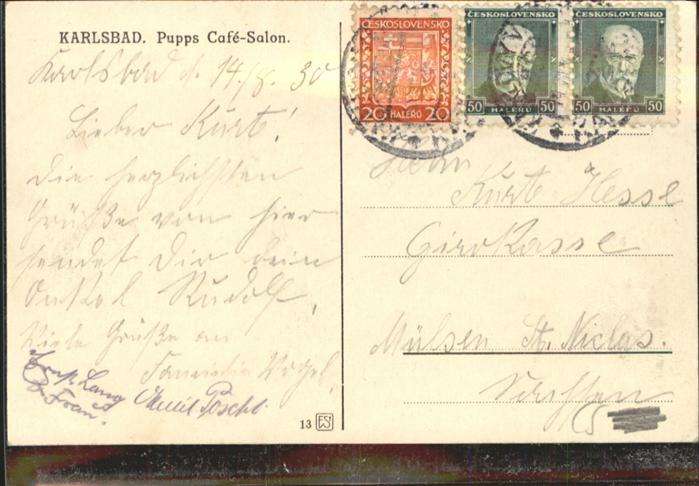 KARLSBAD. Pupps Café-Salon.
Karlsbad d. 14/8. 30
Lieber Kurt!
Die herzlichsten
Grüße von hier
sendet Dir dein
Onkel Rudolf.
Viele Grüße an
Familie Vogel.
Lang
& Frau.
Emil
13
ČESKOSLOVENSKO
20 HALÉŘŮ 20
ČESKOSLOVENSKO
50 HALÉŘŮ 50
ČESKOSLOVENSKO
50 HALÉŘŮ 50
Herrn
Kurt Hesse
Girokasse
Mülsen St. Niclas.
Sachsen